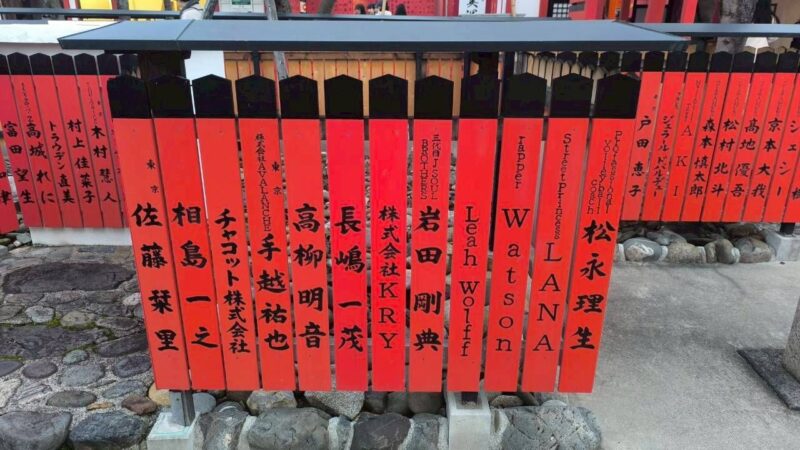 東京
佐藤栞里
相島一之
チャコット株式会社
東京
株式会社AVALANCHE
手越祐也
高柳明音
長嶋一茂
株式会社KRY
三代目J SOUL BROTHERS
岩田剛典
Leah Wolff
rapper
Watson
Street Princess
LANA
professional volleyball coach
松永理生
富田望生
高城れに
トラウデン直美
村上佳菜子
木村慧人
戸田恵子
ジェラール・ドパルデュー
AKI
森本慎太郎
松村北斗
高地優吾
京本大我
ジェシー